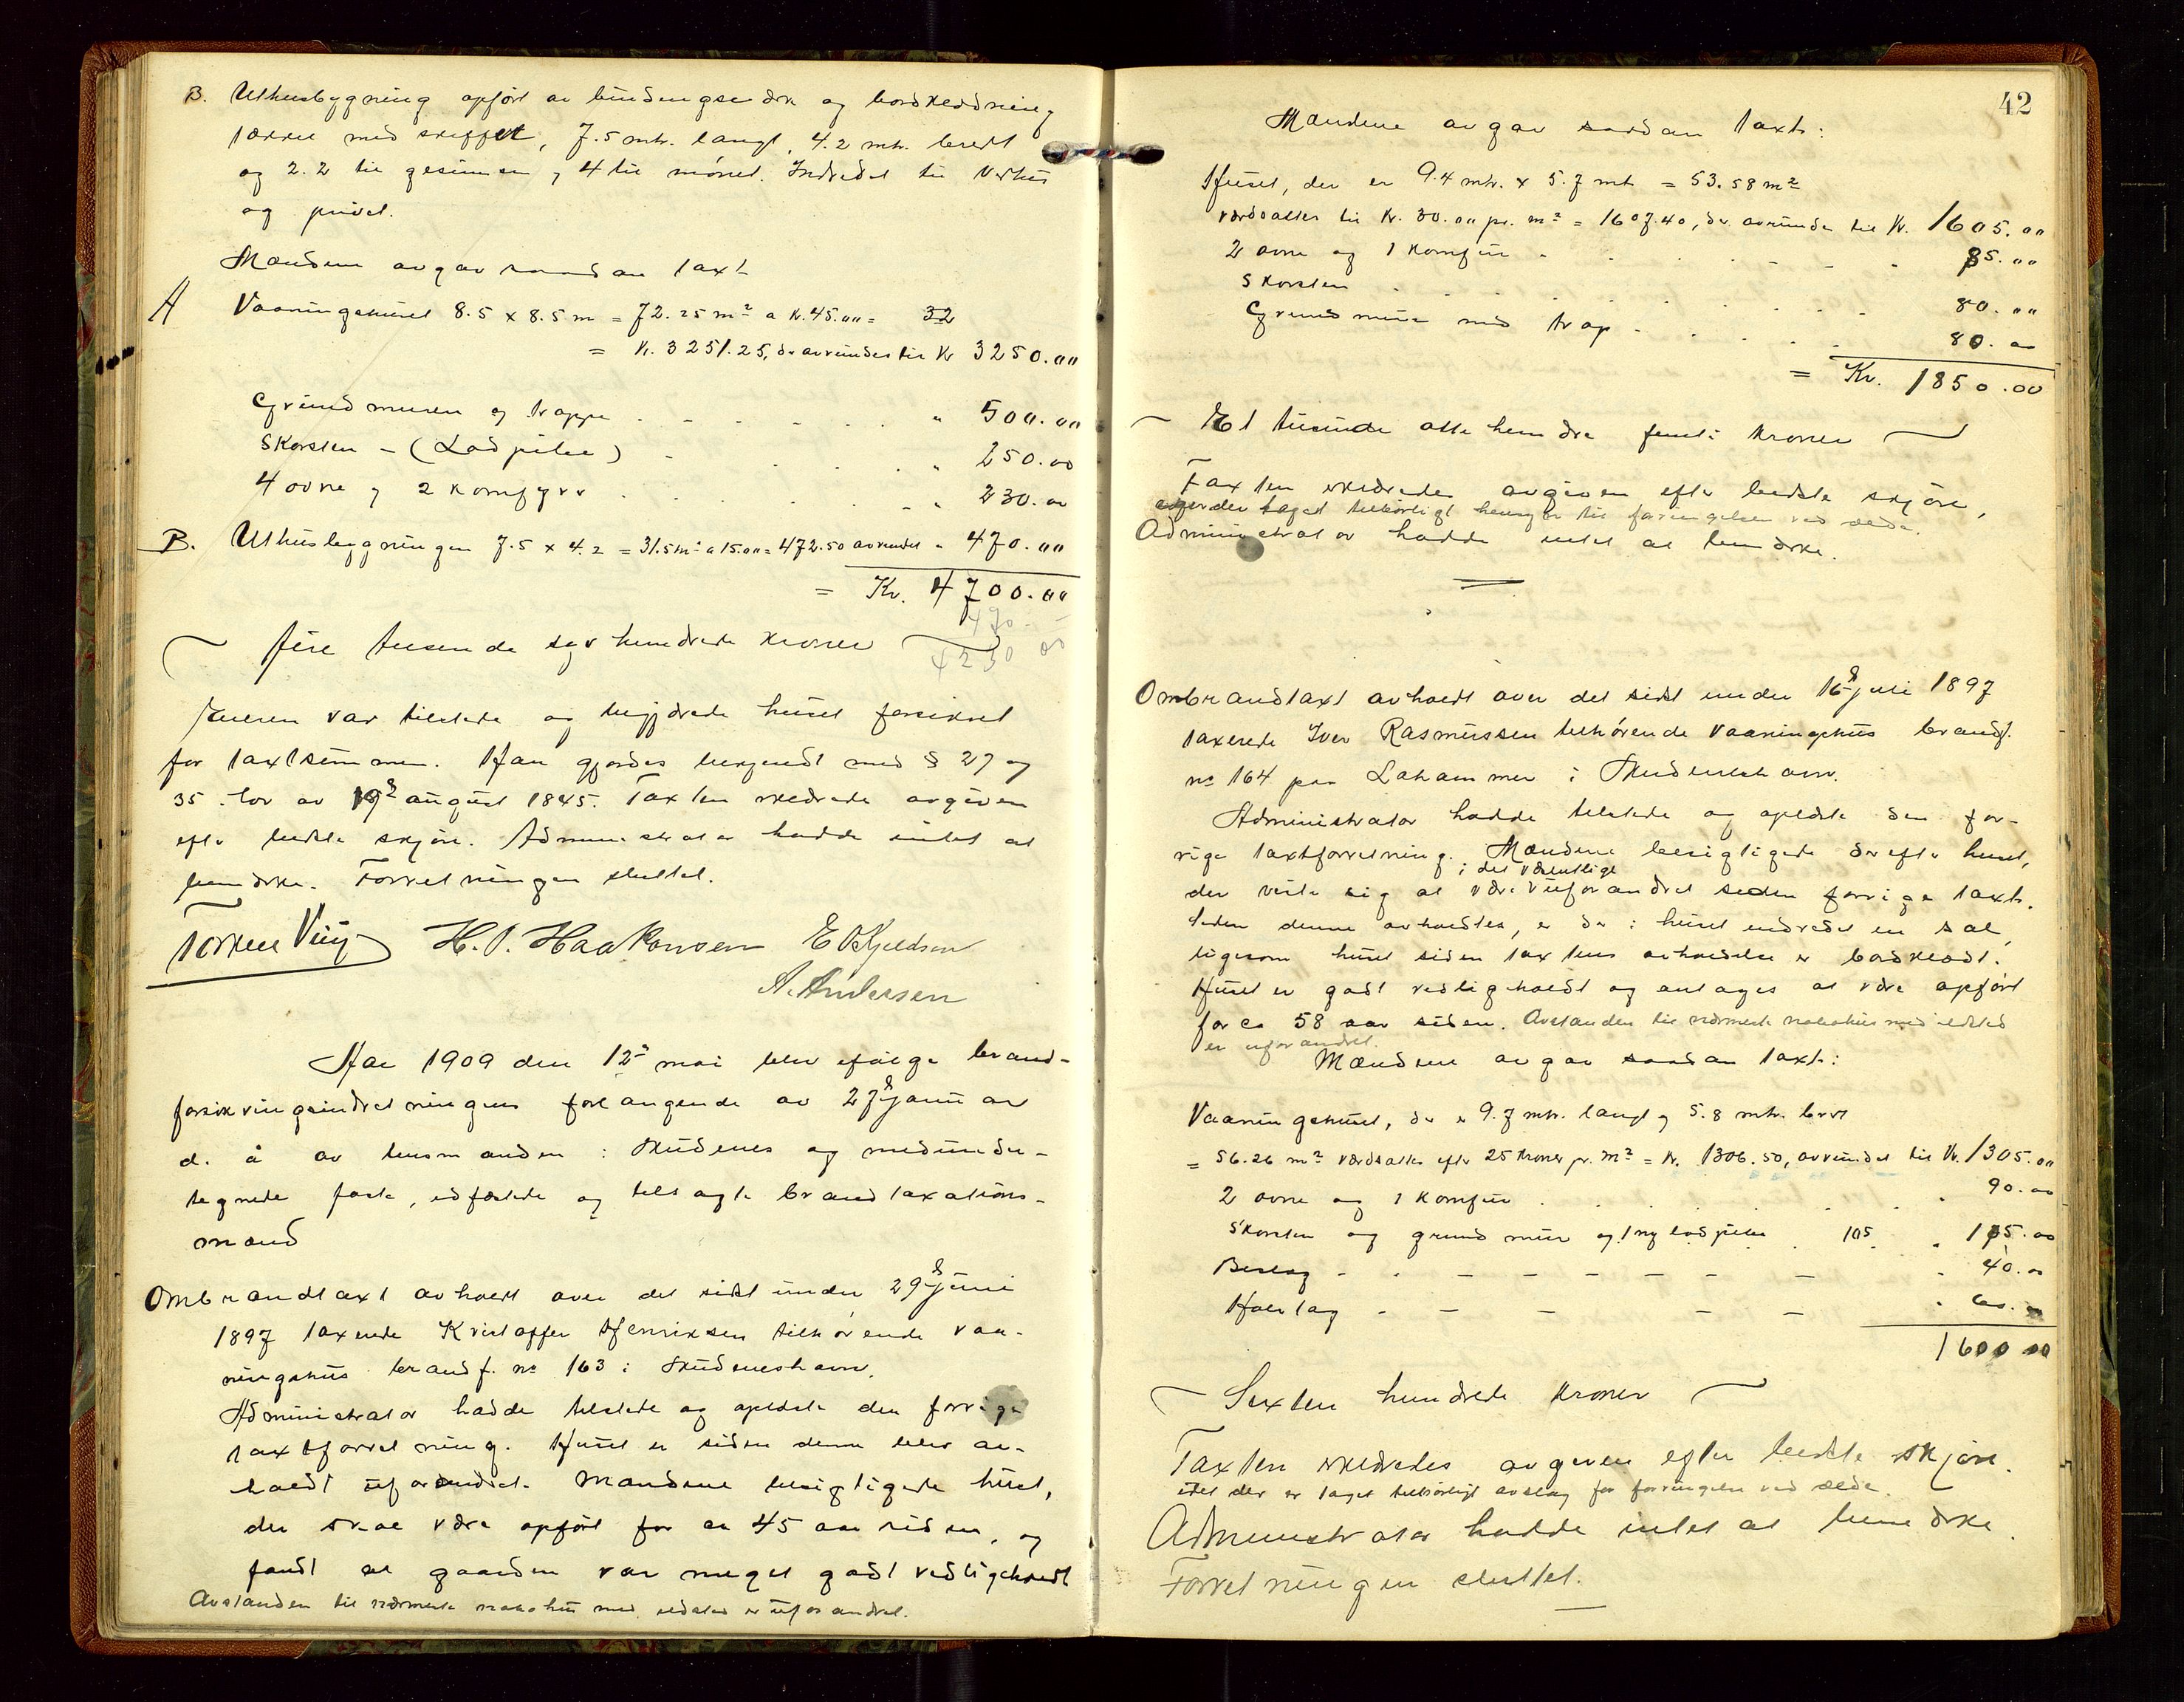 B. Uthusbygning opført av bindingsverk og bordklædning
tækket med skiffer, 7.5 mtr. langt, 4.2 mtr. bredt
og 2.2 til gesimsen, 4 til mønet. Indredet til vedhus
og privet.
Mændene avgav saadan taxt
A Vaaningshuset 8.5 x 8.5 m = 72.25 m² a kr. 45.00 = 32
= Kr. 3251.25, der avrundes til Kr 3250.00
Grundmuren og trappe . . . . . " 500.00
Skorsten - (Lodpibe) - . . . " 250.00
4 ovne og 2 komfyrer . . . . " 230.00
B. Uthusbygningen 7.5 x 4.2 = 31.5 m² a 15.00 = 472.50 avrundet " 470.00
= Kr. 4700.00
470.-
4230 00
Fire tusende syv hundrede kroner
Eieren var tilstede og begjærede huset forsikret
for taxtsummen. Han gjordes bekjendt med § 27 og
35 i lov av 19de august 1845. Taxten erklærede avgiven
efter bedste skjøn. Administrator hadde intet at
bemærke. Forretningen sluttet.
Torkel Viig H. P. Haakonsen E O Kjeldsen
A. Andersen
Aar 1909 den 12te mai blev ifølge brand-
forsikringsindretningens forlangende av 27de januar
d. å av lensmanden i Skudenes og medunder-
tegnede faste, edfæstede og tilsagte brandtaxations-
mænd
Ombrandtaxt avholdt over det sidst under 29de juni
1897 taxerede Kristoffer Henriksen tilhørende vaa-
ningshus brandf. no 163 i Skudeneshavn.
Administrator hadde tilstede og oplæste den forrige
taxtforretning. Huset er siden denne blev av-
holdt uforandret. Mændene besigtigede huset,
der skal være opført for ca 45 aar siden, og
fandt at gaarden var meget godt vedligeholdt
Avstanden til nærmeste nabohus med ildsted er uforandret.
42
Mændene avgav saadan taxt:
Huset, der er 9.4 mtr. x 5.7 mtr = 53.58 m²
værdsattes til Kr. 30.00 pr. m² = 1607.40, der avrundes til Kr. 1605.00
2 ovne og 1 komfur - . . . - - . 85.00
Skorsten . . . . . . . 80.00
Grundmur med trap - . . . . . 80.00
= Kr. 1850.00
Et tusinde otte hundre femti kroner
Taxten erklæredes avgiven efter bedste skjøn,
der taget tilbørligt hensyn til forringelse ved ælde.
Administrator hadde intet at bemærke.
Ombrandtaxt avholdt over det sidst under 16de juli 1897
taxerede Iver Rasmussen tilhørende vaaningshus brandf.
no 164 paa Lahammer i Skudeneshavn.
Administrator hadde tilstede og oplæste den for-
rige taxtforretning. Mændene besigtigede derefter huset,
i det væsentlige
der viste sig at være uforandret siden forrige taxt.
Siden denne avholdtes, er der i huset indredet en sal,
ligesom huset siden taxtens avholdelse er bordklædt.
Huset er godt vedligeholdt og antages at være opført
for ca 58 aar siden. Avstanden til nærmeste nabohus med ildsted
er uforandret.
Mændene avgav saadan taxt:
Vaaningshuset, der er 9.7 mtr. langt og 5.8 mtr. bret
= 56.26 m² værdsattes efter 25 kroner pr. m² = Kr. 1306.50, avrundet til Kr. 1305.00
2 ovne og 1 komfur . . . . . . 90.00
Skorsten og grundmur og 1 ny lodpibe . 105 . 105.00
Beslag - - - - - - - - . 40.00
Halvtag - - - - - . 60.00
1600 00
Sexten hundrede kroner
Taxten erklæredes avgiven efter bedste skjøn.
idet der er taget tilbørligt avslag for forringelse ved ælde.
Administrator hadde intet at bemærke.
Forretningen sluttet.